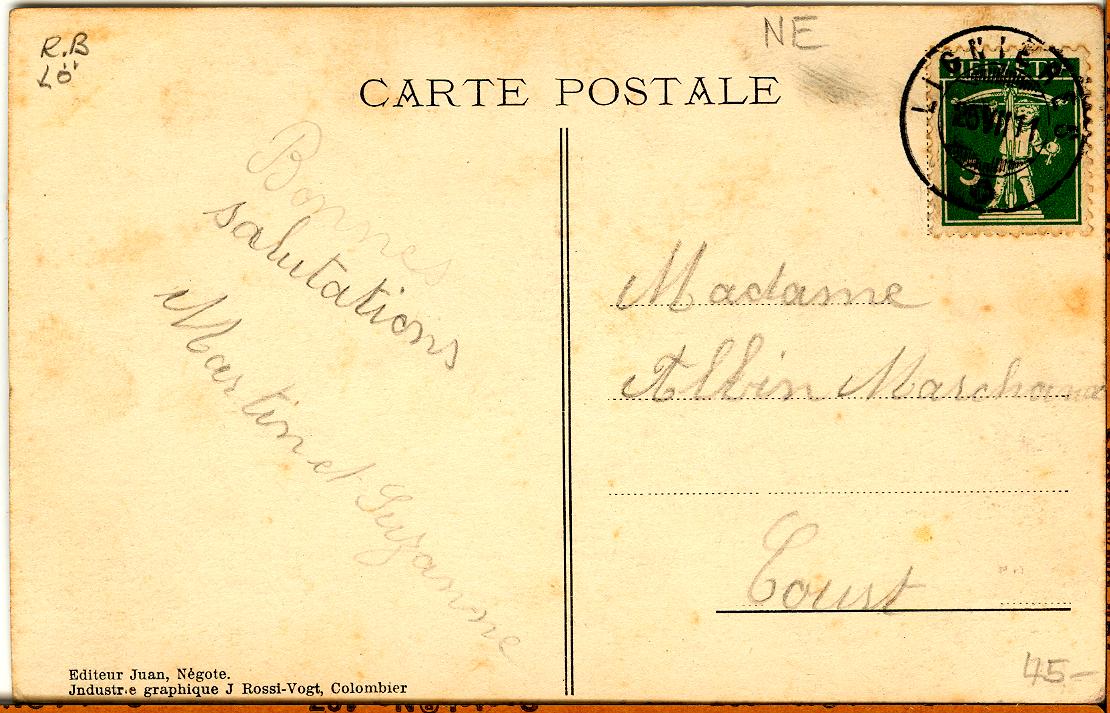 R.B
LÖ
NE
CARTE POSTALE
LIGNIERES
HELVETIA
5
Bonnes
salutations
Martin et Suzanne
Madame
Albin Marchand
Editeur Juan, Négote.
Jndustrie graphique J Rossi-Vogt, Colombier
45-